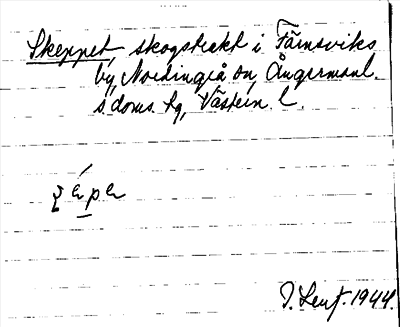 Skeppet, skogstrekt i Färnsviks
by, Nordingrå sn, Ångermanl.
s doms. hg, Västern. l.
J. Lenf. 1944.